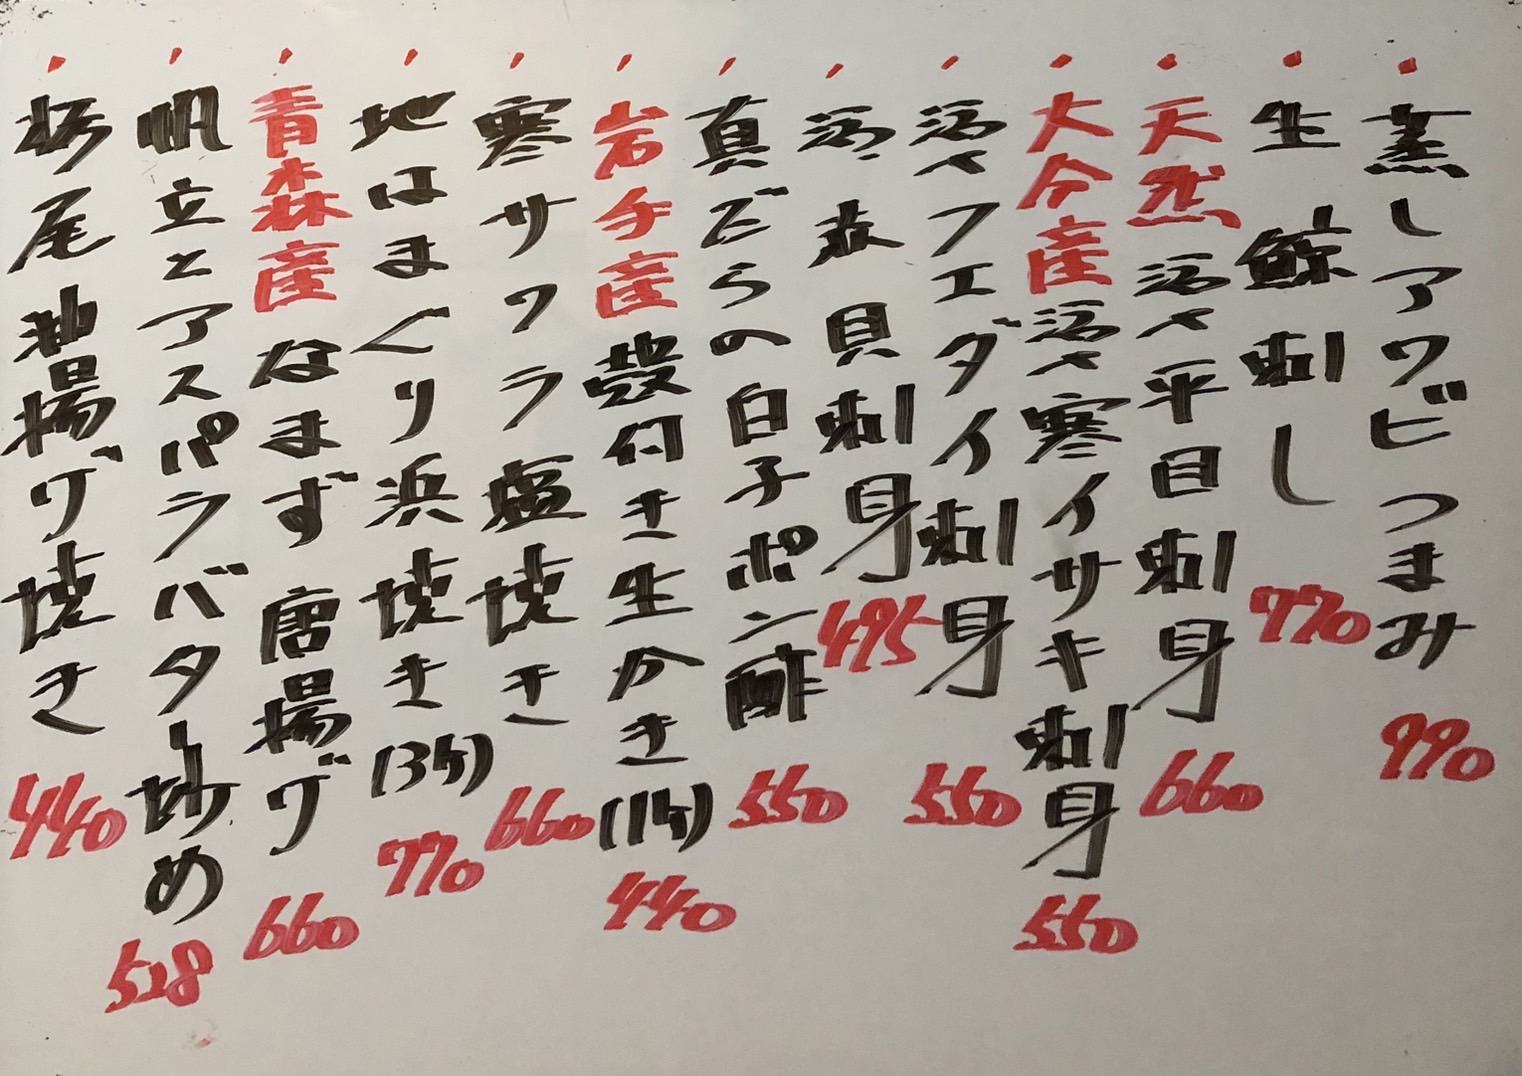 蒸しアワビつまみ 990
生鯨刺し 770
天然活〆平目刺身 660
大分産活〆寒イサキ刺身 550
活〆フエダイ刺身 550
活真貝刺身 495
真だらの白子ポン酢 550
岩手産殻付き生かき(1ケ) 440
寒サワラ塩焼き 660
地はまぐり浜焼き(3ケ) 770
青森産なまず唐揚げ 660
帆立とアスパラバター炒め 528
栃尾油揚げ焼き 440